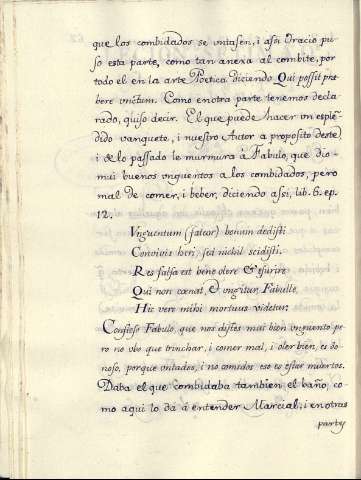 que los combidados se vntasen, i assi Oracio pu-
so esta parte, como tan anexa al combite, por
todo el en la arte Poetica diciendo Qui possit prę-
bere vnctum. Como en otra parte tenemos decla-
rado, quiso decir. El que puede hacer un esplē-
dido vanquete, i nuestro Autor a proposito deste
i de lo passado le murmura à Fabulo, que dio
mui buenos vnguentos a los combidados, pero
mal de comer, i beber, diciendo assi, lib. 6. ep.
12.
Vnguentum (fateor) bonum dedisti
Convivis heri, sed nichil scidisti.
Res salsa est bene olere & esurire
Qui non cœnat, & vngitur, Fabulle,
Hic vere mihi mortuus videtur.
Confieso Fabulo, que nos distes mui bien vnguento pe-
ro no vbo que trinchar, i comer mal, i oler bien, es do-
noso, porque vntados, i no comidos eso es estar muertos.
Daba el que combidaba tambien el baño, co-
mo aqui lo da á entender Marcial, i en otras